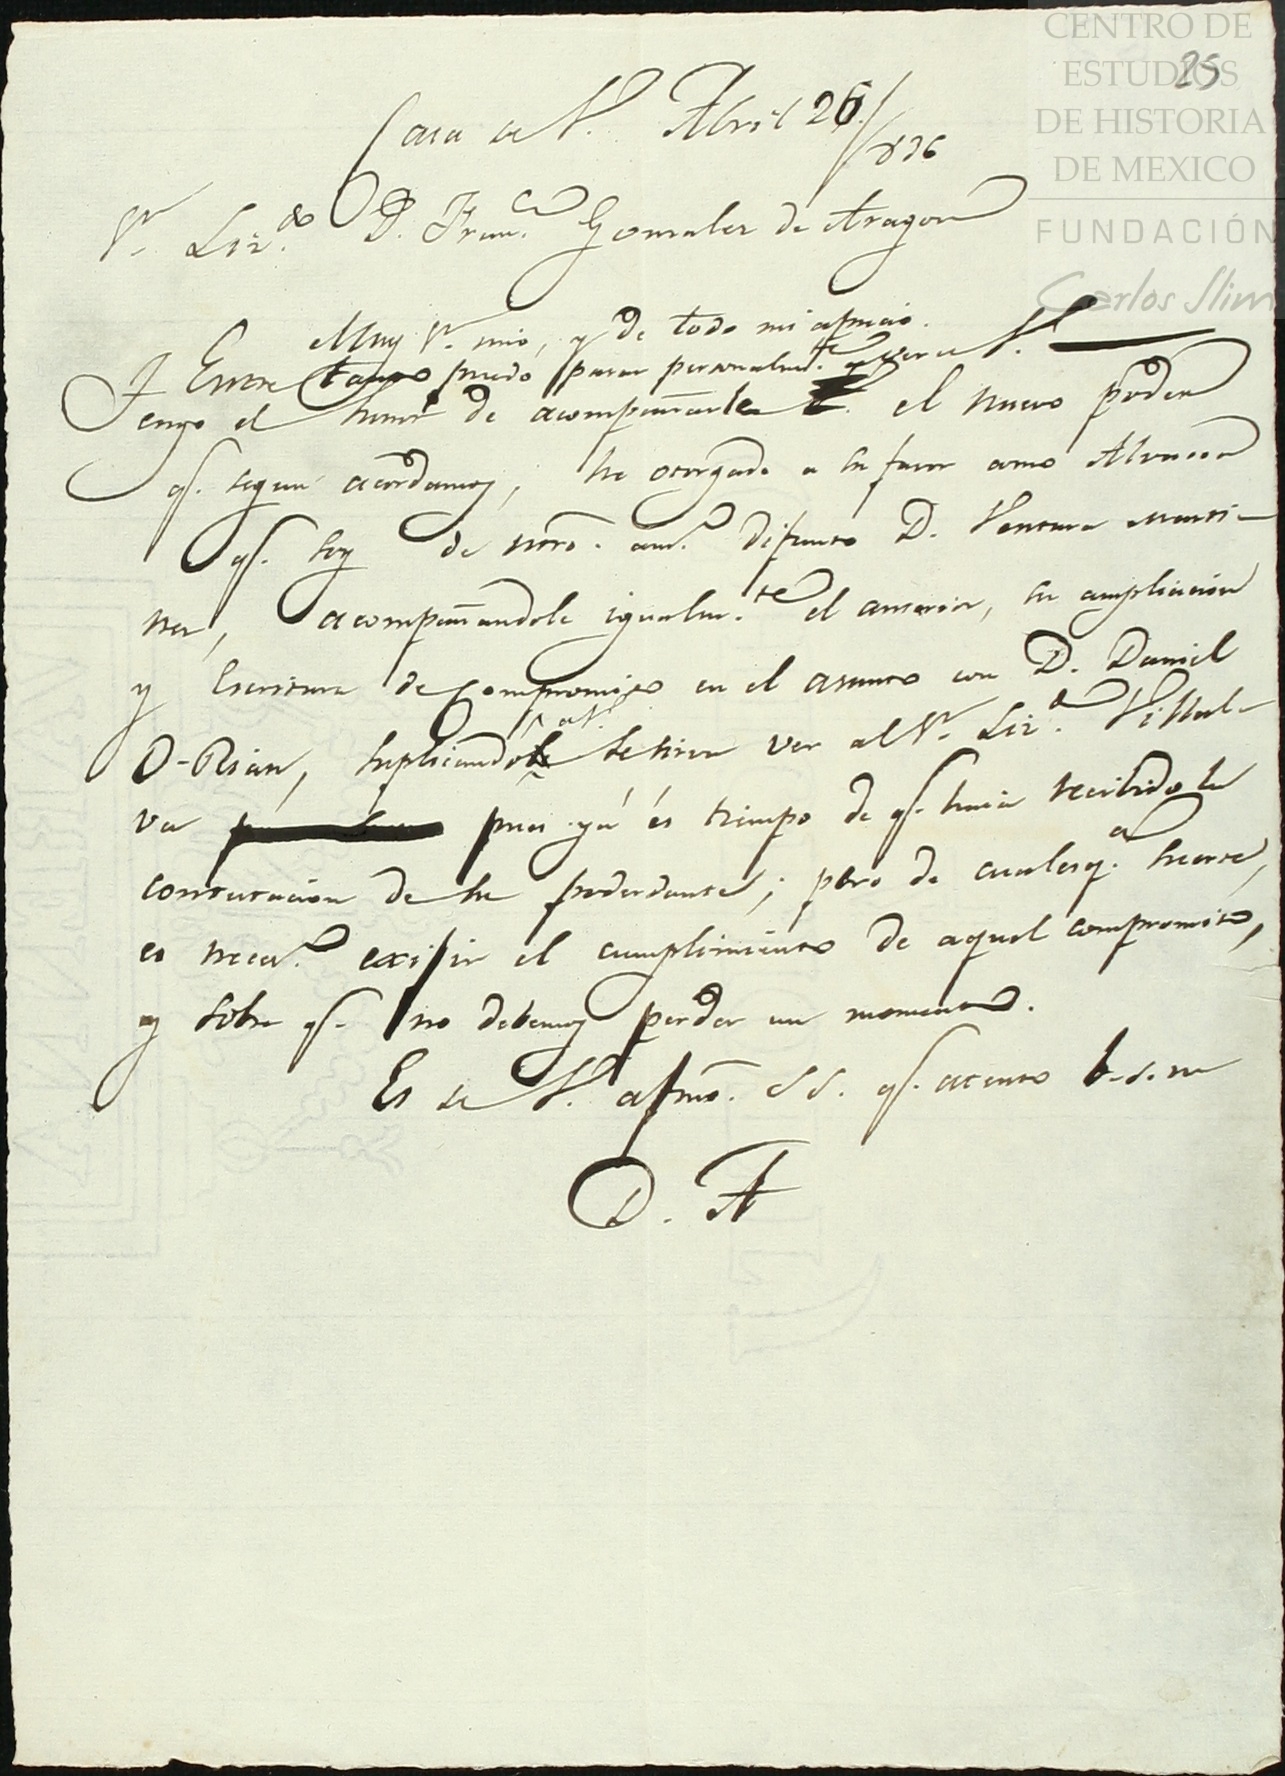 CENTRO DE
ESTUDIOS
DE HISTORIA
DE MEXICO
FUNDACIÓN
Carlos Slim
25
Casa de V. Abril 26/836
Sr. Liz.do D. Fran.co Gonzalez de Aragon
Muy Sr. mio, y de todo mi aprecio.
Entre tanto puedo pasar personalm.te a ver a V.
Tengo el honor de acompañarle el nuevo poder
q.e segun acordamos, he otorgado a su favor como Albacea
q.e soy de ntro. am.o difunto D. Ventura Marti-
nez, acompañandole igualm.te el anterior, su ampliacion
y Escritura de Compromiso en el asunto con D. Daniel
O-Rian, suplicando a V. se sirva ver al Sr. Liz.do Villal-
va pues yá és tiempo de q.e haia recibido la
contestacion de su poderdante; pero de cualesq.a suerte,
es neces.o exijir el cumplimiento de aquel compromiso,
y sobre q.e no debemos perder un momento.
Es de V. afmo. S S. q.e atento b.s.m
D. A